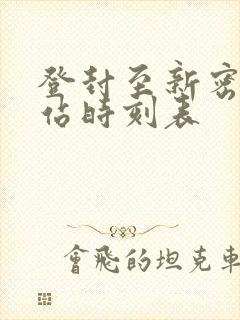 登封至新密
佔時刻表
會飛的坦克車